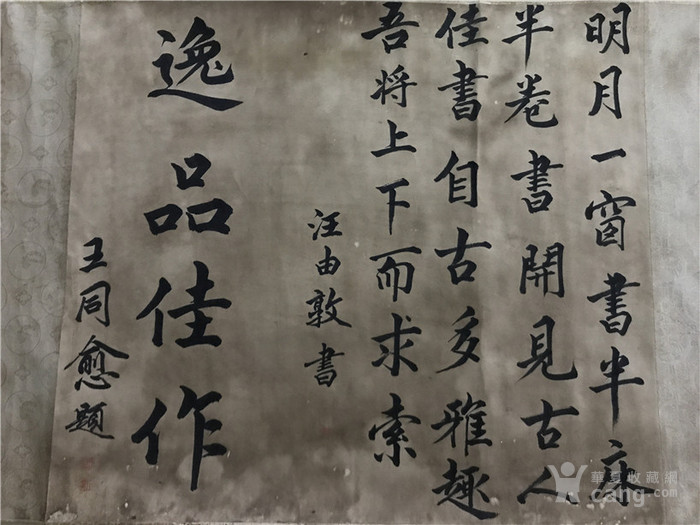 明月一窗書半床
半卷書開見古人
佳書自古多雅趣
吾將上下而求索
汪由敦書
逸品佳作
王同愈題
華夏收藏網
cang.com